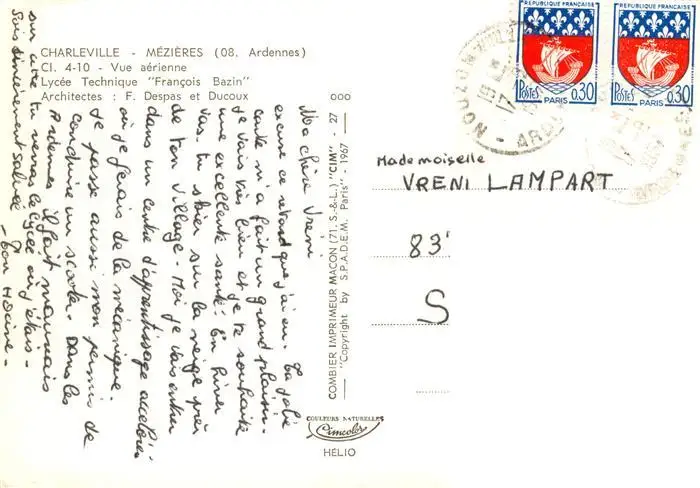 CHARLEVILLE - MÉZIÈRES (08. Ardennes)
Cl. 4-10 - Vue aérienne
Lycée Technique "François Bazin"
Architectes : F. Despas et Ducoux
000
REPUBLIQUE FRANÇAISE
POSTES 0,30
PARIS
REPUBLIQUE FRANÇAISE
POSTES 0,30
PARIS
NOUZON
ARD
Mademoiselle
VRENI LAMPART
83'
S
COMBIER IMPRIMEUR MACON (71. S.-&-L.) "CIM" - 27
"Copyright by S.P.A.D.E.M. Paris" - 1967
COULEURS NATURELLES
Cimcolor
HÉLIO
Ma chère Vreni
excuse ce retard que j'ai eu. Ta jolie
carte m'a fait un grand plaisir.
Je vais très bien et je te souhaite
une excellente santé. En hiver
vas-tu skier sur la neige près
de ton village - Moi je vais entrer
dans un centre d'apprentissage accéléré
où je ferais de la mécanique.
Je passe aussi mon permis de
conduire un scooter. Dans les
Ardennes il fait mauvais
sur cette tu verras le lycée où j'étais -
Sois sincèrement saluée
- ton Hocine -